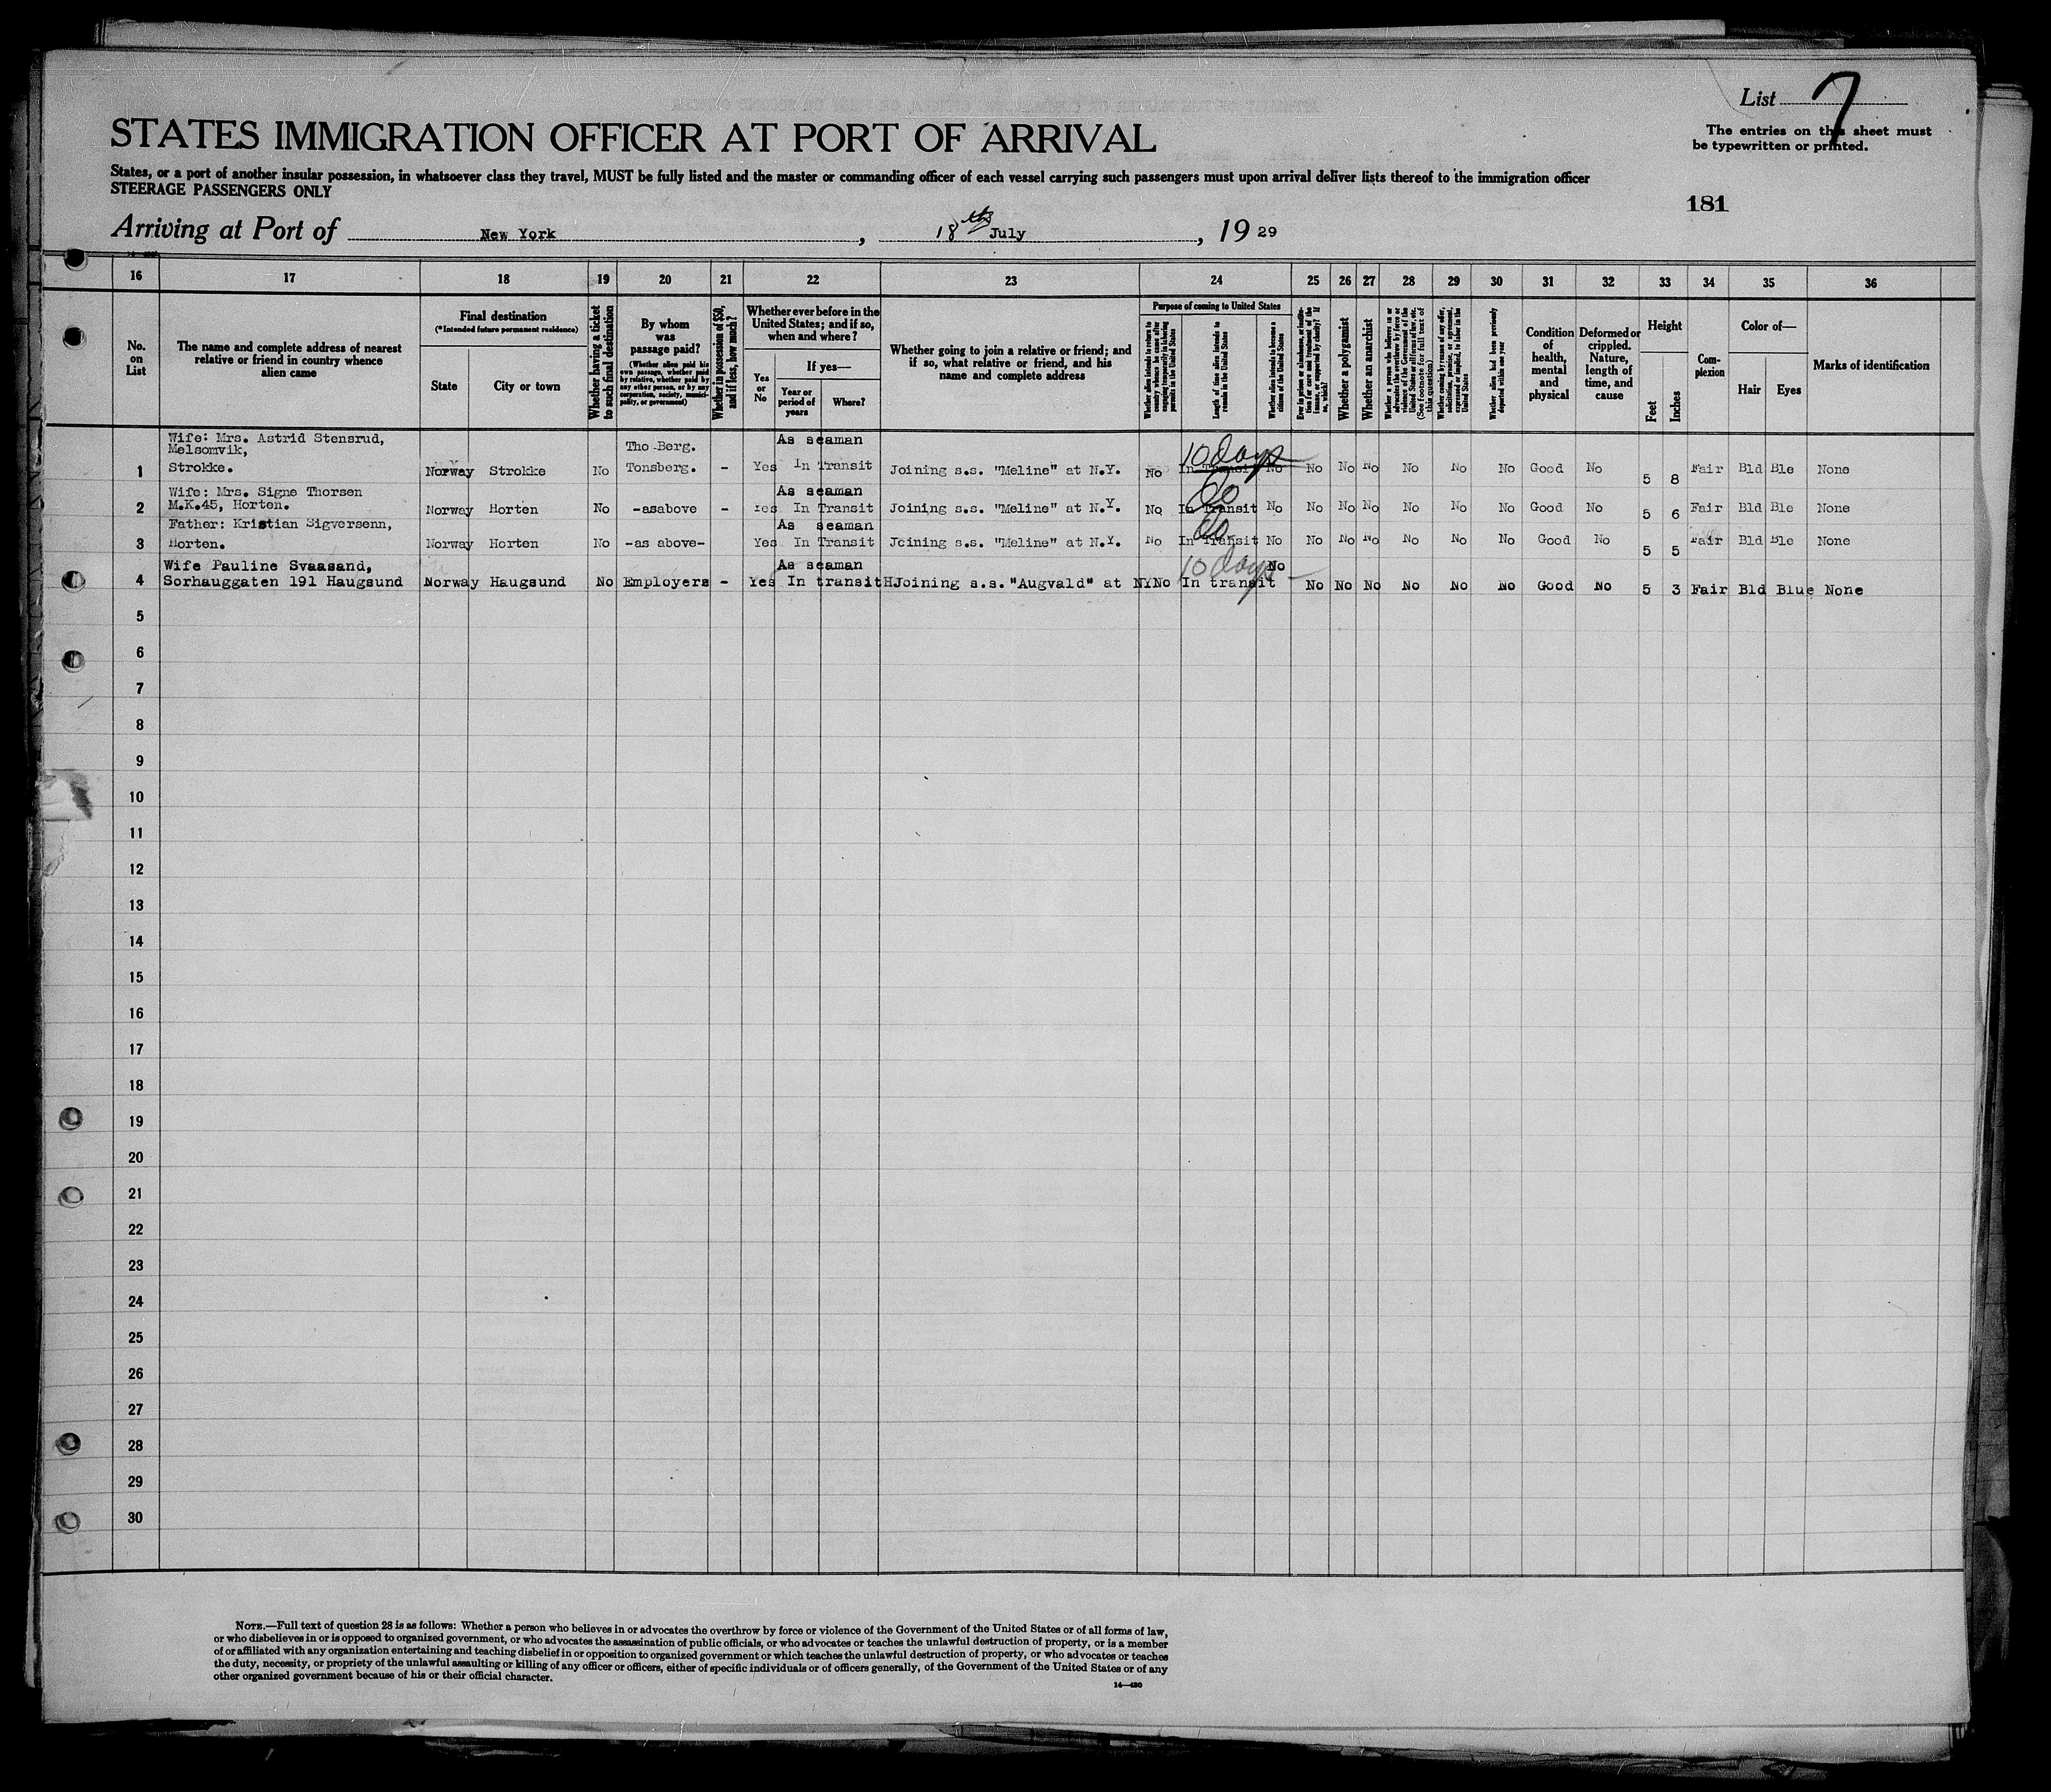 List 7
STATES IMMIGRATION OFFICER AT PORT OF ARRIVAL
The entries on this sheet must
be typewritten or printed.
States, or a port of another insular possession, in whatsoever class they travel, MUST be fully listed and the master or commanding officer of each vessel carrying such passengers must upon arrival deliver lists thereof to the immigration officer
STEERAGE PASSENGERS ONLY
181
Arriving at Port of New York, 18th July, 19 29
16 17 18 19 20 21 22 23 24 25 26 27 28 29 30 31 32 33 34 35 36
No. on List
The name and complete address of nearest
relative or friend in country whence
alien came
Final destination
(*Intended future permanent residence)
State
City or town
Whether having a ticket
to such final destination
By whom
was
passage paid?
(Whether alien paid his
own passage, whether paid
by relative, whether paid by
any other person, or by any
corporation, society, munici-
pality, or government)
Whether in possession of $50,
and if less, how much?
Whether ever before in the
United States; and if so,
when and where?
Yes
or
No
If yes—
Year or
period of
years
Where?
Whether going to join a relative or friend; and
if so, what relative or friend, and his
name and complete address
Purpose of coming to United States
Whether alien intends to return to
country whence he came after
engaging temporarily in laboring
pursuits in the United States
Length of time alien intends to
remain in the United States
Whether alien intends to become a
citizen of the United States
Ever in prison or almshouse, or institu-
tion for care and treatment of the
insane, or supported by charity? If
so, which?
Whether a polygamist
Whether an anarchist
Whether a person who believes in or
advocates the overthrow by force or
violence of the Government of the
United States or all forms of law, etc.
(See footnote for full text of
this question)
Whether coming by reason of any offer,
solicitation, promise, or agreement,
expressed or implied, to labor in the
United States
Whether alien had been previously
deported within one year
Condition
of
health,
mental
and
physical
Deformed or
crippled.
Nature,
length of
time, and
cause
Height
Feet
Inches
Com-
plexion
Color of—
Hair
Eyes
Marks of identification
Wife: Mrs. Astrid Stensrud,
Melsomvik, Tho Berg. As seaman 10 days
1 Strokke. Norway Strokke No Tonsberg. - Yes In Transit Joining s.s. "Meline" at N.Y. No In Transit No No No No No No No Good No 5 8 Fair Bld Ble None
Wife: Mrs. Signe Thorsen As seaman do
2 M.K.45, Horten. Norway Horten No -asabove - Yes In Transit Joining s.s. "Meline" at N.Y. No In Transit No No No No No No No Good No 5 6 Fair Bld Ble None
Father: Kristian Sigversenn, As seaman do
3 Horten. Norway Horten No -as above- Yes In Transit Joining s.s. "Meline" at N.Y. No In Transit No No No No No No No Good No 5 5 Fair Bld Ble None
Wife Pauline Svaasand, As seaman 10 days No
4 Sorhauggaten 191 Haugsund Norway Haugsund No Employers - Yes In transitHJoining s.s."Augvald" at NYNo In transit No No No No No No Good No 5 3 Fair Bld Blue None
5
6
7
8
9
10
11
12
13
14
15
16
17
18
19
20
21
22
23
24
25
26
27
28
29
30
NOTE.—Full text of question 28 is as follows: Whether a person who believes in or advocates the overthrow by force or violence of the Government of the United States or of all forms of law,
or who disbelieves in or is opposed to organized government, or who advocates the assassination of public officials, or who advocates or teaches the unlawful destruction of property, or is a member
of or affiliated with any organization entertaining and teaching disbelief in or opposition to organized government or which teaches the unlawful destruction of property, or who advocates or teaches
the duty, necessity, or propriety of the unlawful assaulting or killing of any officer or officers, either of specific individuals or of officers generally, of the Government of the United States or of any
other organized government because of his or their official character.
14—430